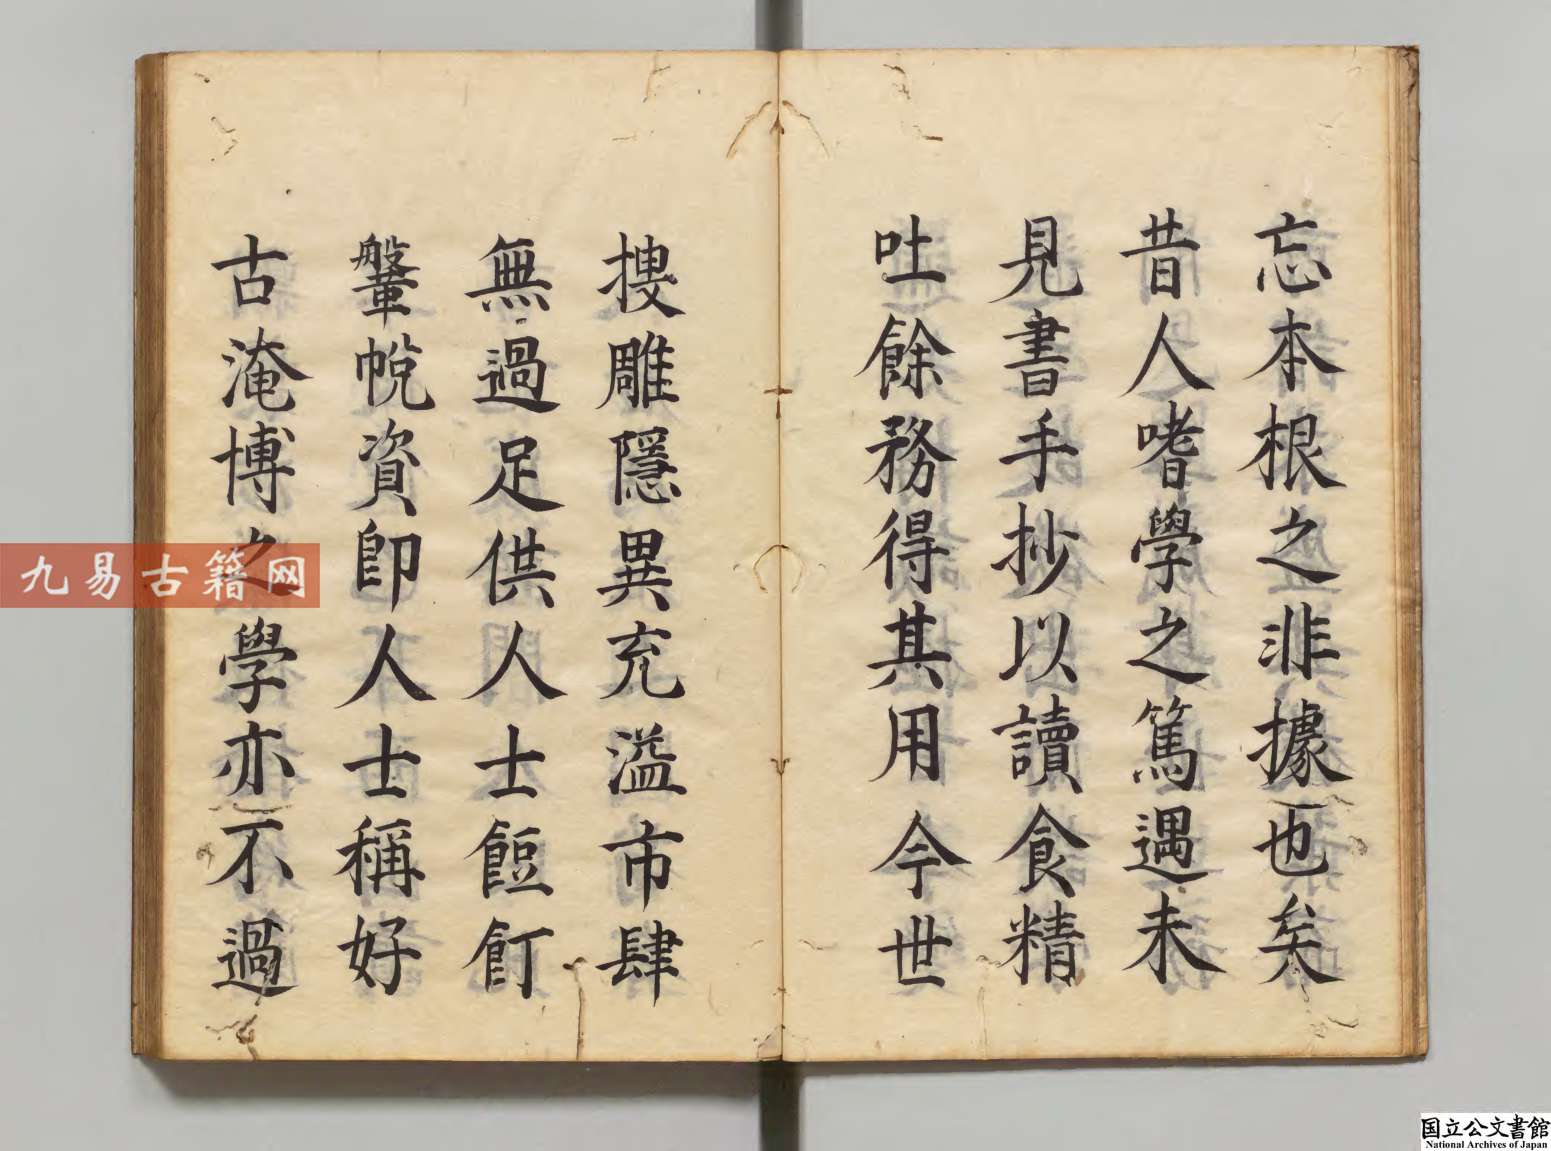 忘本根之非據也矣
昔人嗜學之篤遇未
見書手抄以讀食精
吐餘務得其用今世
搜雕隱異充溢市肆
無過足供人士餖飣
鞶帨資即人士稱好
古淹博之學亦不過
九易古籍网
国立公文書館
National Archives of Japan